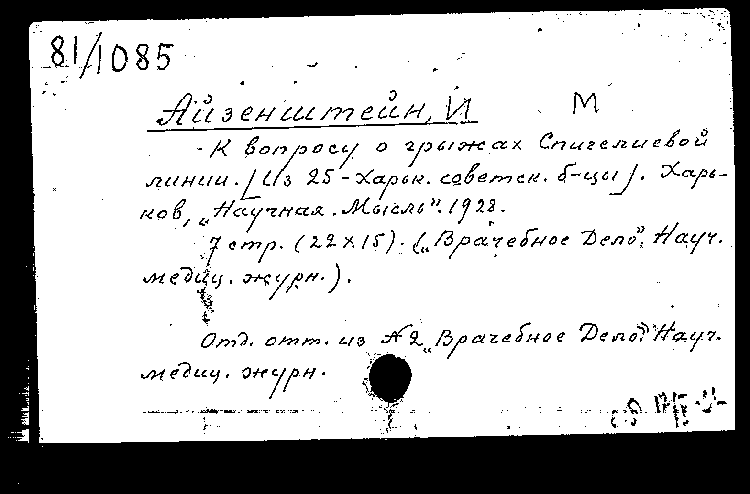 81/1085
Айзенштейн, И М
- К вопросу о грыжах Спигелиевой
линии. [Из 25-Харьк. советск. б-цы]. Харь-
ков, „Научная. Мысль". 1928.
7 стр. (22х15). („Врачебное Дело". Науч.
медиц. журн.).
Отд. отт. из №2 „Врачебное Дело". Науч.
медиц. журн.